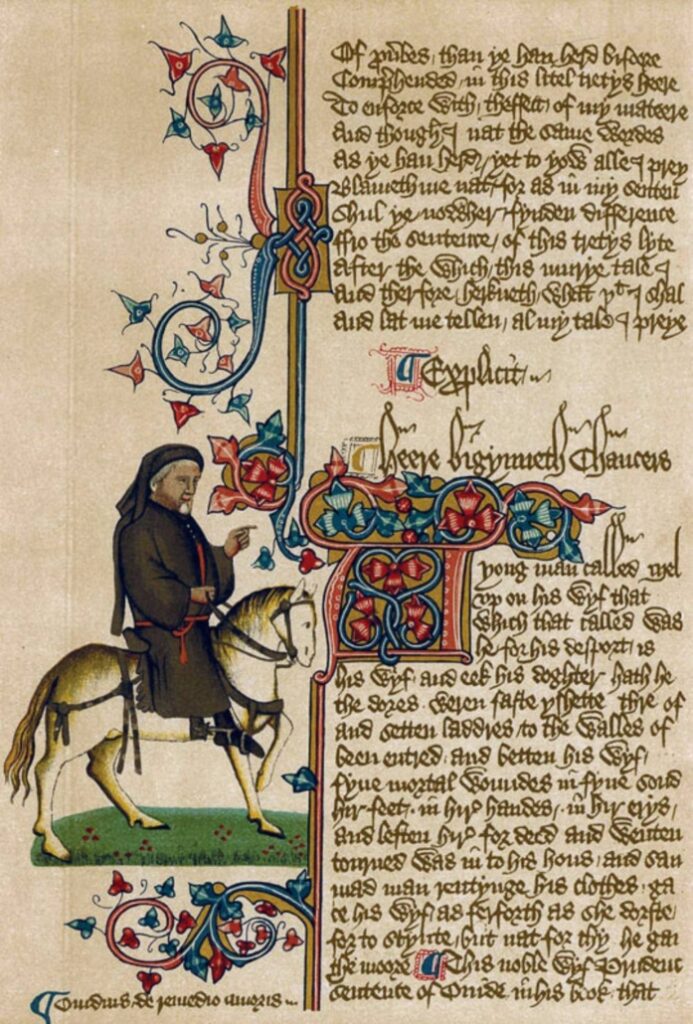 Of prouerbes, than ye han herd bifore
Comprehended, in this litel tretys heere
To enforce with, theffect, of my mateere
And though I nat the same wordes
as ye han herd, yet to yow alle I prey
Blameth me nat, for as in my senten
Shul ye nowher, fynden difference
ffro the sentence, of this tretys lyte
after the which, this murye tale I
And therfore, herkneth, what yt I shal
And lat me tellen, al my tale I preye
Explicit
Heere bigynneth Chaucers
yong man called Mel
vp on his wyf that
which that called was
he for his desport, is
his wyf, and eek his doghter hath he
the dores weren faste yshette thre of
and setten laddres to the walles of
been entred, and betten his wyf,
fyue mortal woundes in fyue sond
hir feet, in hir handes, in hir erys,
and leften hir for deed and wenten
tourned was in to his hous, and sau
mad man, rentynge his clothes, ga
ce his wyf, as ferforth as she dorste,
for to stynte, but nat for thy he gan
the moore This noble wyf Prudenc
sentence of Ouide in his book, that
Ouidius de remedio amoris